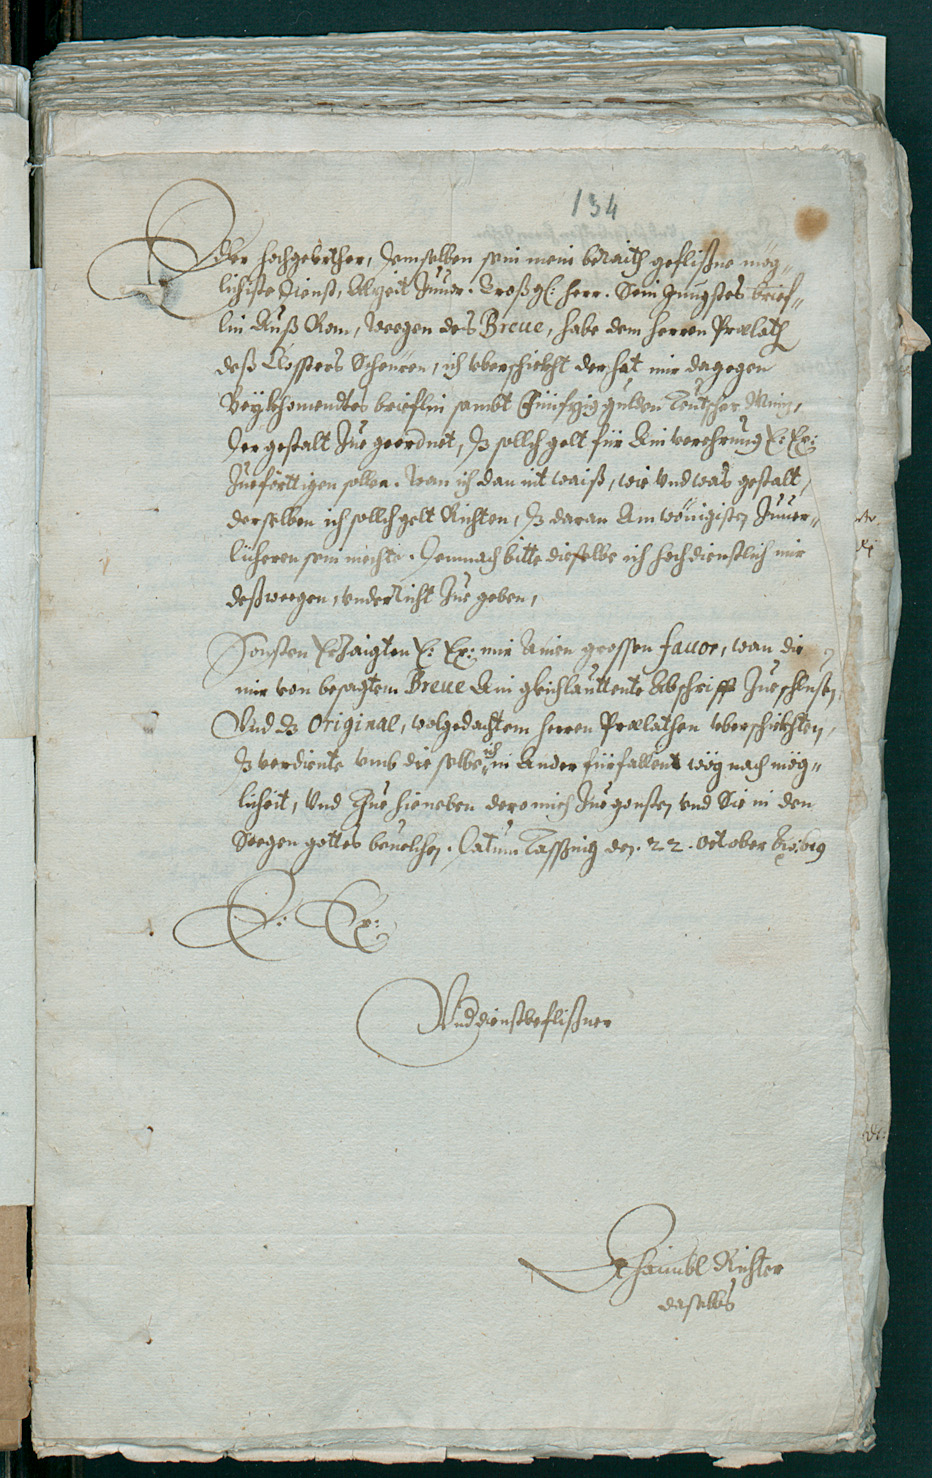 134
Edler hochgelerther, demselben sein mein beraith geflißne mög„
lichiste dienst, Alzeit zuuor. Groß gl: herr. Sein Jungstes brief„
lin Auß Rom, weegen des Breue, habe dem herren Prælath
deß Closters Scheuren, ich vberschickht der hat mir dagegen
Beykhomendtes brieflin sambt Fünfzig gulden Teutscher Minz,
dergestalt zue geordnet, dz sollch gelt für Ain verehrung E: Ex:
zueförttigen solle. wan ich dan nit waiß, wie vnd was gestalt,
derselben ich sollch gelt Richten, dz daran Am wönigisten zuuer„
lieheren sein mechte. demnach bitte dieselbe ich hochdienstlich mir
deßweegen, vnderricht zue geben,
Sonsten Erzaigten E: Ex: mir Ainen grossen fauor, wan die
mir von besagtem Breue Ain gleichlauttente Abschrifft zueschickhten,
Vnd dz Original, wolgedachtem herren Prælathen vberschickhten,
dz verdiente vmb die selbe ich in Ander fürfallent wög nach mög„
licheit, Vnd thue hieneben dero mich zue gonsten vnd Sie in den
Seegen gottes beuelchen. Datum Tassing den. 22. October Ao: 619
E: Ex:
Vnd dienstbeflißner
Richter
daselbs